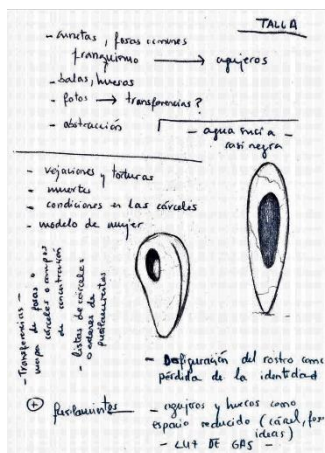 TALLA
- cunetas, fosas comunes
franquismo → agujeros
- balas, huesos
- fotos → transferencias?
- abstracción
- agua sucia -
casi negra
- vejaciones y torturas
- muertes
- condiciones en las cárceles
- modelo de mujer
- Transferencias -
mapa de fosas o
cárceles o campos
de concentración
- listas de cárceles
o ordenes de
fusilamientos
- Desfiguración del rostro como
pérdida de la identidad
+ fusilamientos - agujeros y huecos como
espacio reducido (cárcel, fosa
ideas)
- LUZ DE GAS -